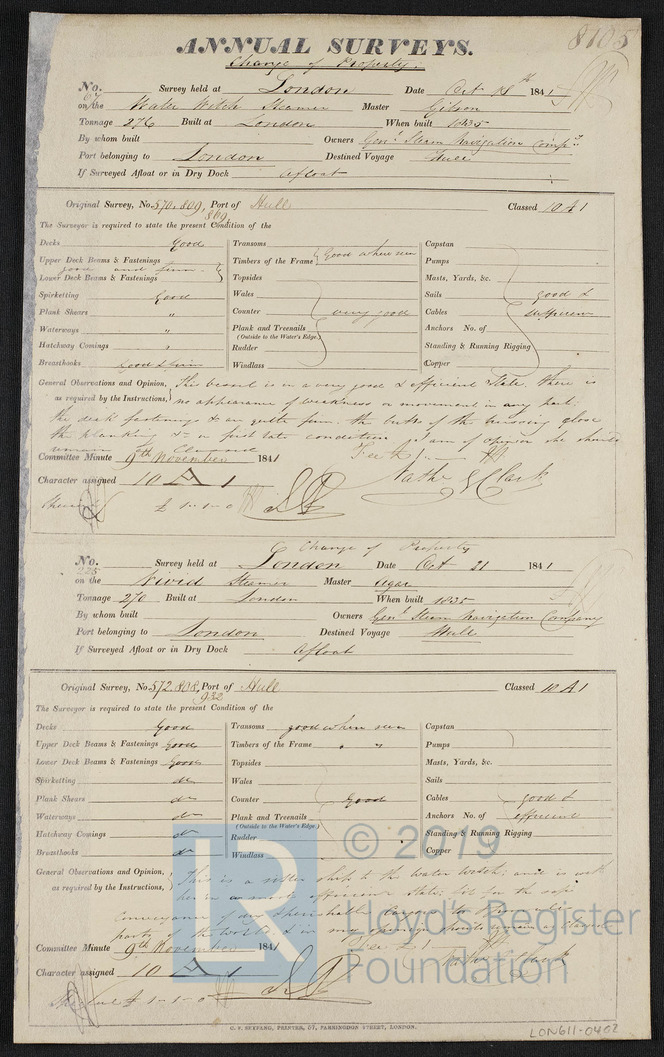 8105
ANNUAL SURVEYS.
Change of Property.
No. 67 Survey held at London Date Oct 18th 1841
on the Water Witch Steamer Master Gibson
Tonnage 276 Built at London When built 1835
By whom built Owners Genl. Steam Navigation Compy.
Port belonging to London Destined Voyage Hull
If Surveyed Afloat or in Dry Dock afloat
Original Survey, No. 570.809, Port of Hull Classed 10 A 1
869
The Surveyor is required to state the present Condition of the
Decks Good Transoms Capstan
Upper Deck Beams & Fastenings Timbers of the Frame good where seen Pumps
good and firm
Lower Deck Beams & Fastenings Topsides Masts, Yards, &c.
Spirketting Good Wales Sails good &
Plank Shears " Counter very good Cables
Waterways " Plank and Treenails Anchors No. of
(Outside to the Water's Edge.)
Hatchway Comings " Rudder Standing & Running Rigging
Breasthooks Good & firm Windlass Copper
General Observations and Opinion, This vessel is in a very good & efficient State. there is
as required by the Instructions, no appearance of weakness or movement in any part.
the deck fastenings & are quite firm. the butts of the close
the planking &c in first rate condition I am of opinion she should
remain as Classed
Committee Minute 9th November 1841 Fee £1
Character assigned 10 A 1 Nathl. G Clark
£ 1-1-0
Change of Property
No. 225 Survey held at London Date Oct 21 1841
on the Vivid Steamer Master Agar
Tonnage 270 Built at London When built 1835
By whom built Owners Genl. Steam Navigation Company
Port belonging to London Destined Voyage Hull
If Surveyed Afloat or in Dry Dock Afloat
Original Survey, No. 572.808, Port of Hull Classed 10 A 1
932
The Surveyor is required to state the present Condition of the
Decks Good Transoms good where seen Capstan
Upper Deck Beams & Fastenings Good Timbers of the Frame " " Pumps
Lower Deck Beams & Fastenings Good Topsides Masts, Yards, &c.
Spirketting do Wales Sails
Plank Shears do Counter Good Cables good &
Waterways do Plank and Treenails Anchors No. of efficient
(Outside to the Water's Edge.)
Hatchway Comings do Rudder Standing & Running Rigging
Breasthooks do Windlass Copper
General Observations and Opinion, This is a sister ship to the Water Witch, and is with
as required by the Instructions, her in a most efficient state: fit for the safe
Conveyance of dry & perishable Cargoes to
parts of the World & in my opinion should remain as Classed
Committee Minute 9th November 1841 Fee £1
Character assigned 10 A 1 Nathl. G Clark
£ 1-1-0
© 2019
LR
Lloyd's Register
Foundation
PRINTER, 57, FARRINGDON STREET, LONDON.
LON611-0402